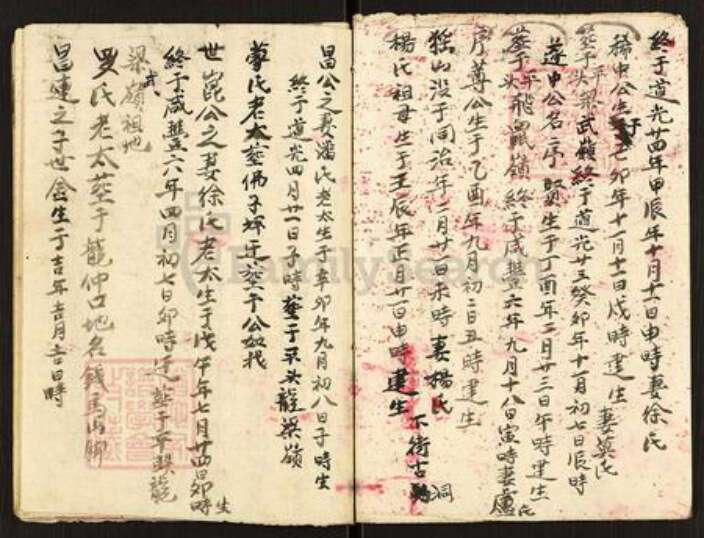 终于道光廿四年甲辰年十月十一日申時妻徐氏
稀中公生于乙卯年十一月十一日戌時建生 妻莫氏
葬于平头梁武嶺终于道光廿三癸卯年十一月初七日辰時
蓬中公名序賢生于丁酉年二月廿三日午時建生
葬于平头飛鼠嶺终于咸豐六年九月十八日寅時妻盧氏
序尊公生于乙酉年九月初二日丑時建生
山没于同治年二月廿一日未時妻楊氏 下街古洞
楊氏祖母生于壬辰年正月廿一日申時建生
昌公之妻潘氏老太生于辛卯年九月初八日子時生
终于道光四月廿一日子時葬于平头龍梁嶺
蒙氏老太葬佛子坪迁葬于公如找
世崑公之妻徐氏老太生于戊午年七月廿四日卯時生
终于咸豐六年四月初七日卯時迁葬于平头龍
梁武嶺祖地
吳氏老太葬于龍仲口地名錢馬山脚
昌連之子世金生于吉年吉月吉日時
FamilySearch